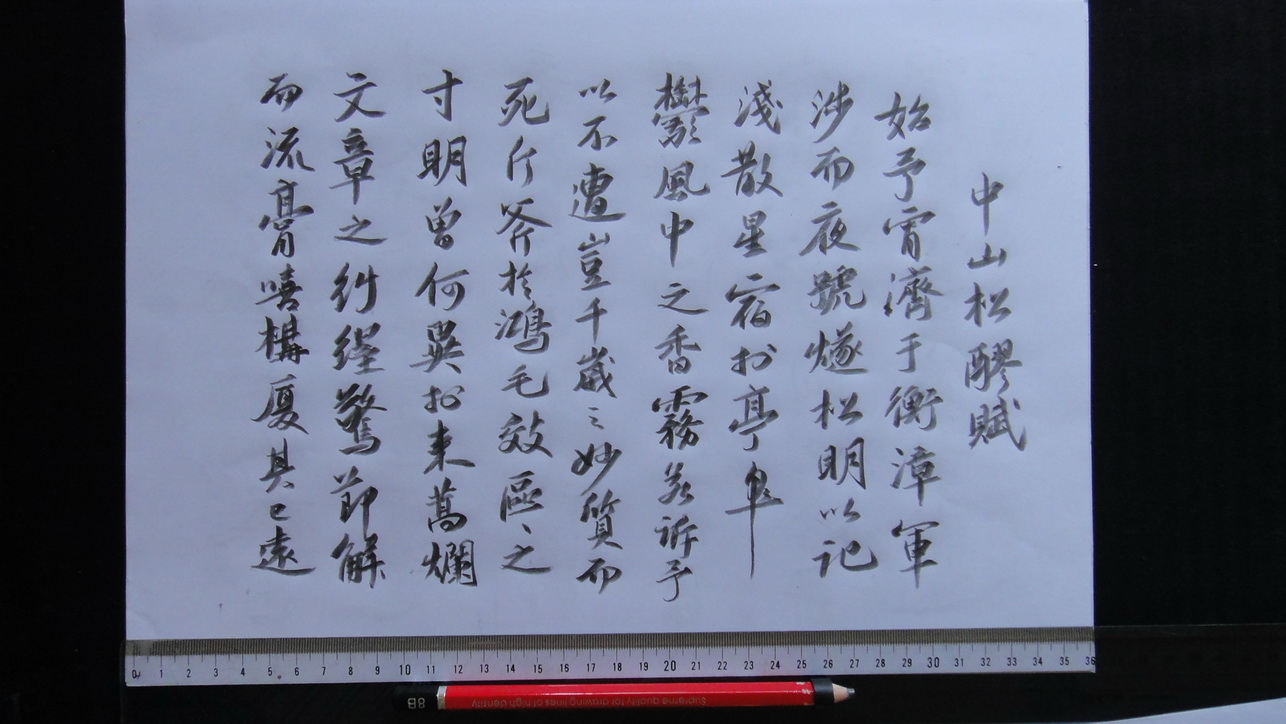 中山松醪賦
始予宵濟于衡漳軍
涉而夜號燧松明以記
淺散星宿於亭皐
鬱風中之香霧若訴予
以不遭豈千歲之妙質而
死斤斧於鴻毛效區々之
寸明曾何異於束蒿爛
文章之糾纏驚節解
而流膏嘻構廈其已遠
0 1 2 3 4 5 6 7 8 9 10 11 12 13 14 15 16 17 18 19 20 21 22 23 24 25 26 27 28 29 30 31 32 33 34 35 36
8B